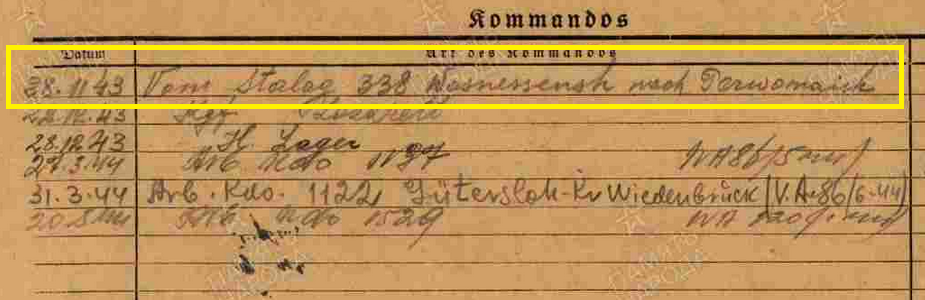 Kommandos
Datum Art des Kommandos
28.11.43 Vom Stalag 338 Wosnessensk nach Perwomaisk
28.12.43 H. Lager
27.3.44 Arb. Kdo 1137 VA 86/5
31.3.44 Arb. Kdo. 1122 Gütersloh-Kr Wiedenbrück (V.A. 86/6.44)
Arb Kdo 1529 VA
ПАМЯТЬ НАРОДА